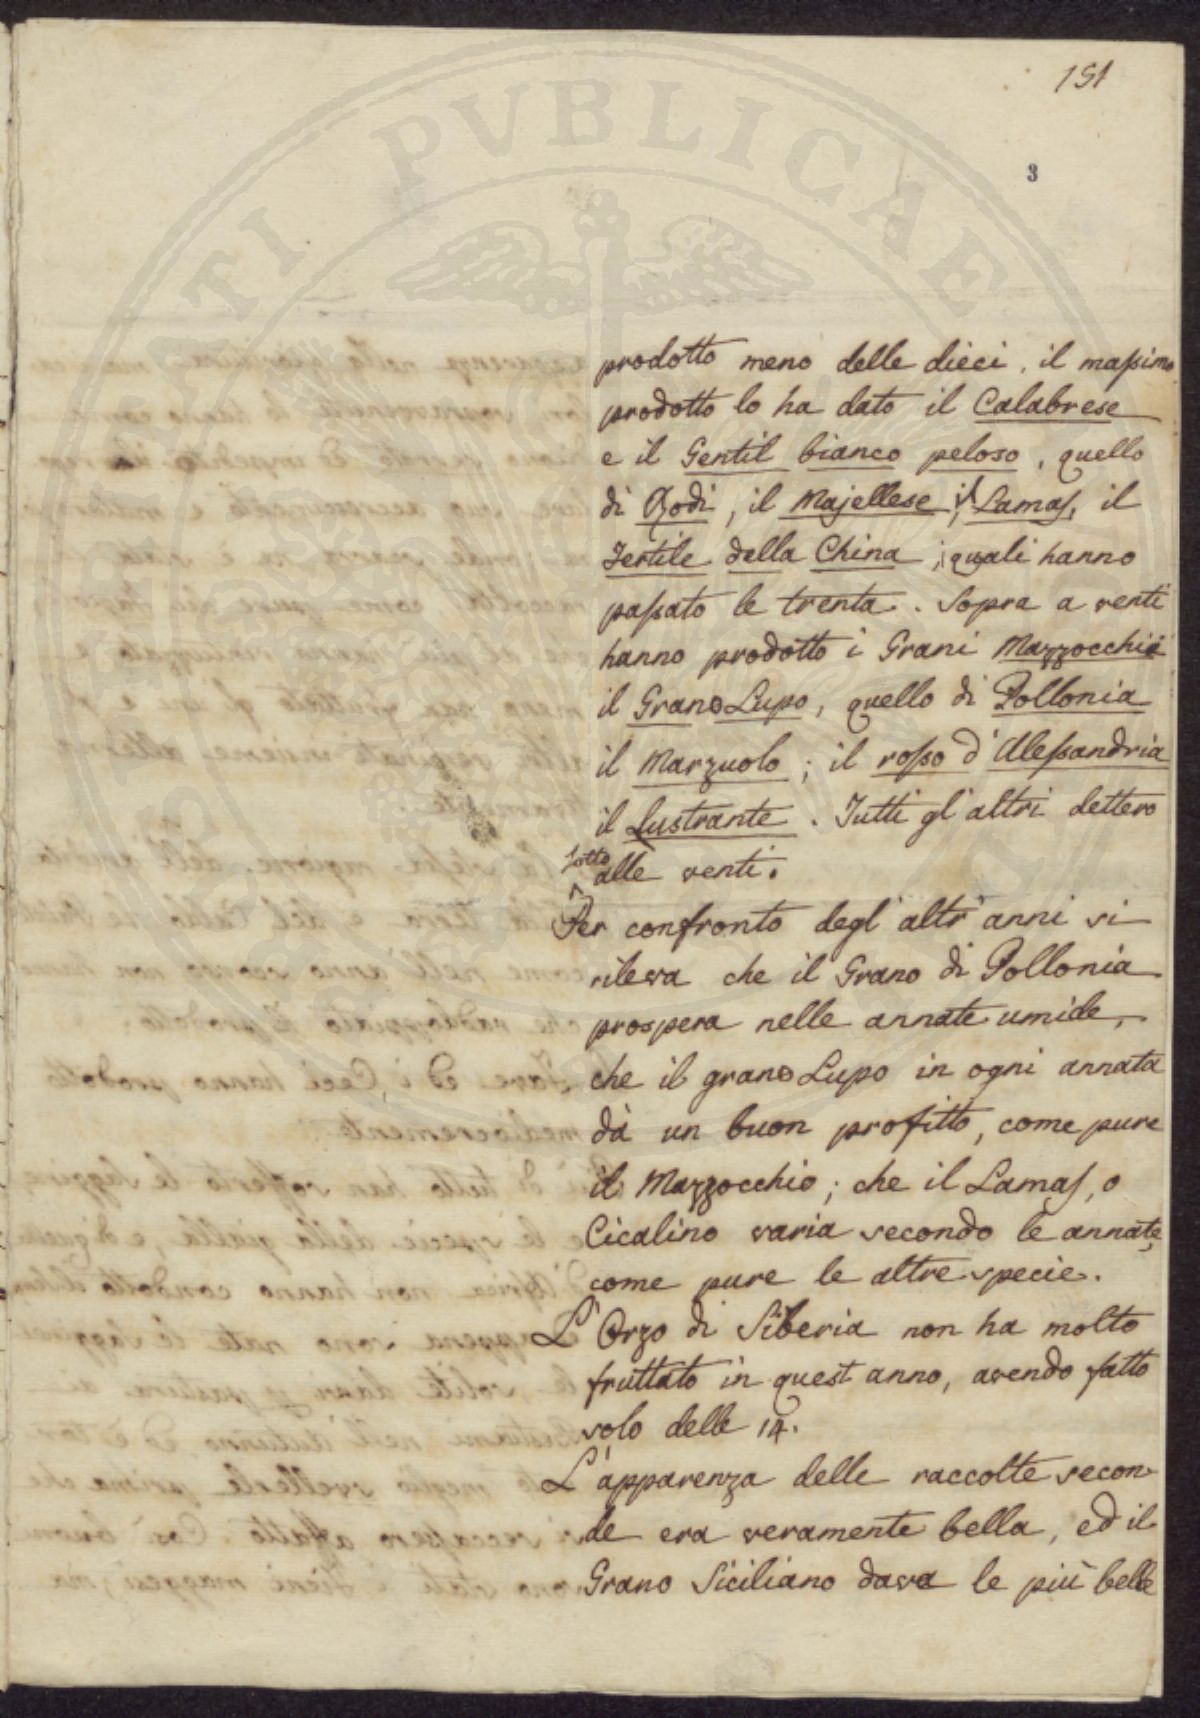 151
3
prodotto meno delle dieci, il maſsimo
prodotto lo ha dato il Calabrese
e il Gentil bianco peloso, quello
di Rodi, il Majellese, il Lamaſ, il
Fertile della China; i quali hanno
paſsato le trenta. Sopra a venti
hanno prodotto i Grani Mazzocchii
il Grano Lupo, quello di Pollonia
il Marzuolo; il roſso d'Aleſsandria
il Lustrante. Tutti gl'altri dettero
sotto alle venti.
Per confronto degl'altr'anni si
rileva che il Grano di Pollonia
prospera nelle annate umide,
che il grano Lupo in ogni annata
dà un buon profitto, come pure
il Mazzocchio; che il Lamaſ, o
Cicalino varia secondo le annate,
come pure le altre specie.
L'Orzo di Siberia non ha molto
fruttato in quest'anno, avendo fatto
solo delle 14.
L'apparenza delle raccolte secon-
de era veramente bella, ed il
Grano Siciliano dava le più belle
PVBLICAE